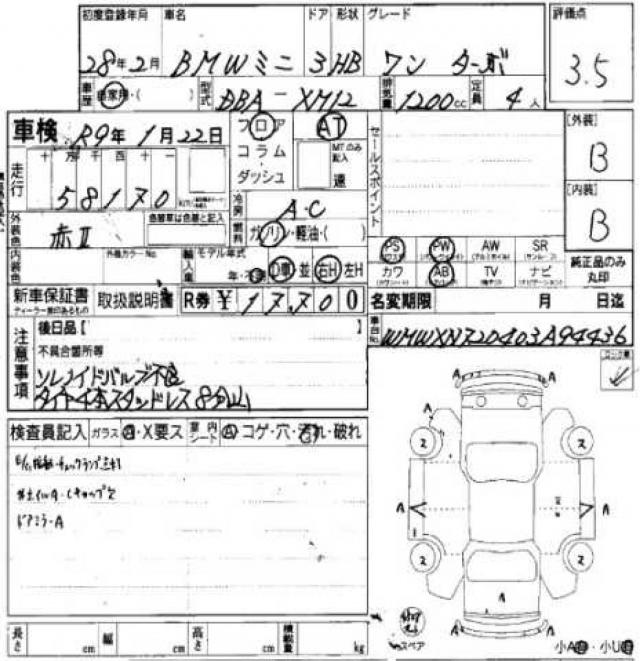 初度登録年月 車名 ドア 形状 グレード 評価点
28年2月 BMWミニ 3HB ワン ターボ 3.5
車歴 自家用・( ) 型式 DBA-XM12 排気量 1200cc 定員 4人
車検 R9年1月22日 フロア AT セールスポイント [外装]
走行 十万千百十一 コラム MTのみ記入 B
58170 ダッシュ 速
冷房 A・C [内装]
外装色 赤II 色替車は色替と記入 燃料 ガソリン・軽油・( ) B
内装色 外装カラーNo. 輸入車 モデル年式 PS PW AW SR 純正品のみ
年・不明 D車 並 右H 左H カワ AB TV ナビ 丸印
新車保証書 取扱説明書 R券 ¥ 13700 名変期限 月 日迄
ディーラー印のあるもの
注意事項 後日品[ 車台No. WMWXN720403A94436
不具合箇所等
ソレノイドバルブ不良
タイヤ4本スタッドレス8分山
検査員記入 ガラス ・X要ス 室内シート A コゲ・穴・汚れ・破れ
ホイルA・Cキャップ欠
ドアミラーA
A A
2 2
A A
1
2 2
A A
A
長さ cm 幅 cm 高さ cm 積載量 kg スペア 小A ・小U